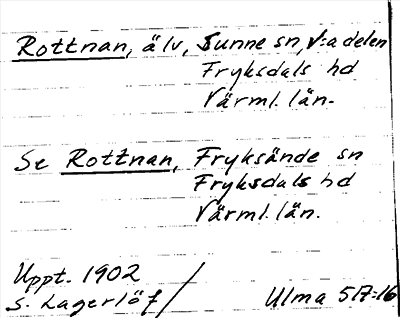 Rottnan, älv, Sunne sn, V:a delen
Fryksdals hd
Värml. län.
Se Rottnan, Fryksände sn
Fryksdals hd
Värml. län.
Uppt. 1902
S. Lagerlöf
Ulma 517:16